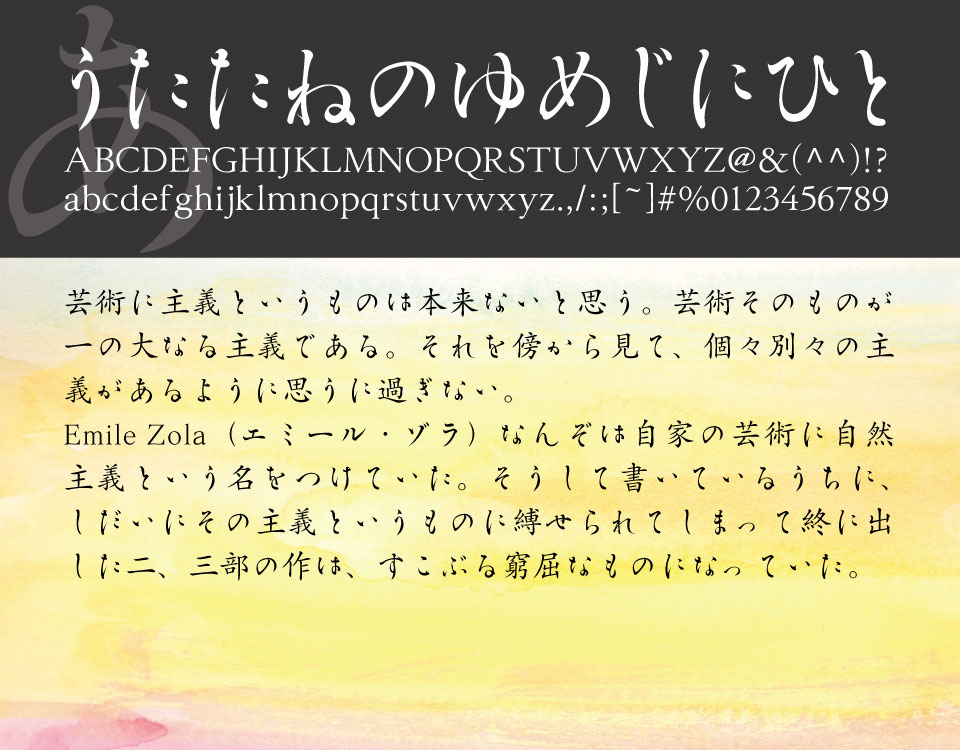 あ
うたたねのゆめじにひと
ABCDEFGHIJKLMNOPQRSTUVWXYZ@&(^^)!?
abcdefghijklmnopqrstuvwxyz.,/:;[~]#%0123456789
芸術に主義というものは本来ないと思う。芸術そのものが
一の大なる主義である。それを傍から見て、個々別々の主
義があるように思うに過ぎない。
Emile Zola（エミール・ゾラ）なんぞは自家の芸術に自然
主義という名をつけていた。そうして書いているうちに、
しだいにその主義というものに縛せられてしまって終に出
した二、三部の作は、すこぶる窮屈なものになっていた。